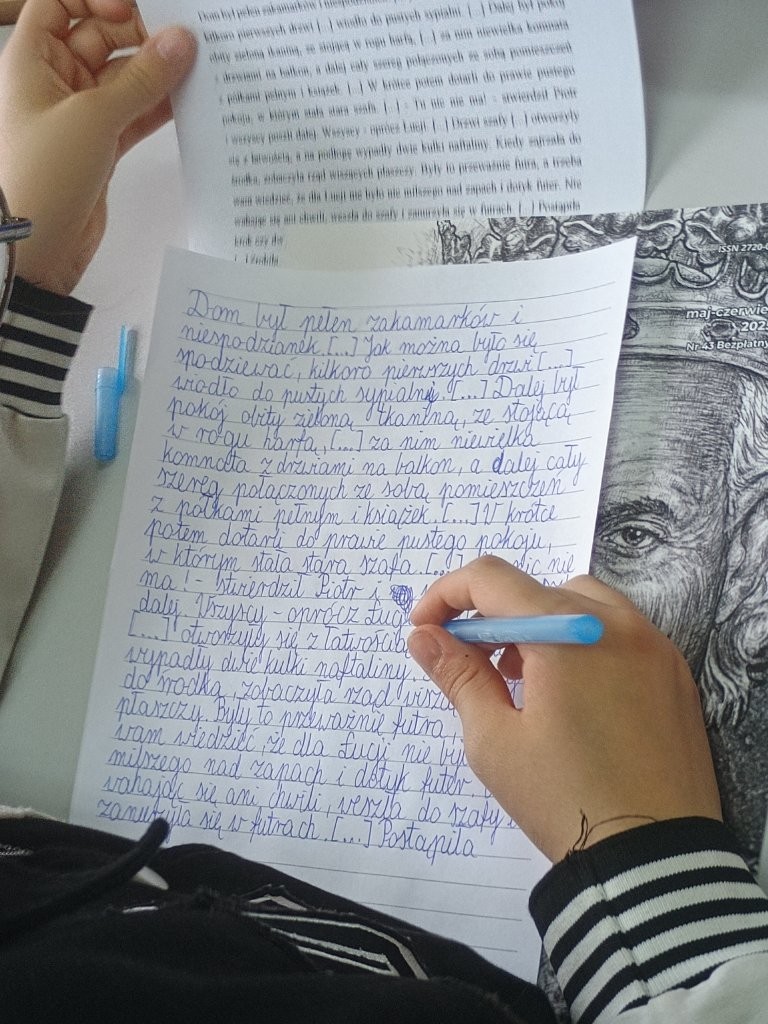 Dom był pełen zakamarków
kilkoro pierwszych drzwi [...] wiodło do pustych sypialni. [...] Dalej był pokój
obity zieloną tkaniną, ze stojącą w rogu harfą, [...] za nim niewielka komnata
z drzwiami na balkon, a dalej cały szereg połączonych ze sobą pomieszczeń
z półkami pełnym i książek. [...] W krótce potem dotarli do prawie pustego
pokoju, w którym stała stara szafa. [...] - Tu nic nie ma! - stwierdził Piotr
i wszyscy poszli dalej. Wszyscy - oprócz Łucji. [...] Drzwi szafy [...] otworzyły
się z łatwością, a na podłogę wypadły dwie kulki naftaliny. Kiedy zajrzała do
środka, zobaczyła rząd wiszących płaszczy. Były to przeważnie futra, a trzeba
wam wiedzieć, że dla Łucji nie było nic milszego nad zapach i dotyk futer. Nie
wahając się ani chwili, weszła do szafy i zanurzyła się w futrach. [...] Postąpiła
krok czy dw
ISSN 2720-
maj-czerwie
202
Nr 43 Bezpłatny
Dom był pełen zakamarków i
niespodzianek. [...] Jak można było się
spodziewać, kilkoro pierwszych drzwi [...]
wiodło do pustych sypialnię. [...] Dalej był
pokój obity zieloną tkaniną, ze stojącą
w rogu harfą, [...] za nim niewielka
komnata z drzwiami na balkon, a dalej cały
szereg połączonych ze sobą pomieszczeń
z półkami pełnym i książek. [...] W krótce
potem dotarli do prawie pustego pokoju,
w którym stała stara szafa. [...] nic nie
ma! - stwierdził Piotr i
dalej. Wszyscy - oprócz Łucji
[...] otworzyły się z łatwością
wypadły dwie kulki naftaliny.
do środka, zobaczyła rząd wisz
płaszczy. Były to przeważnie futra,
wam wiedzieć, że dla Łucji nie by
milszego nad zapach i dotyk futer.
wahając się ani chwili, weszła do szafy i
zanurzyła się w futrach. [...] Postąpiła